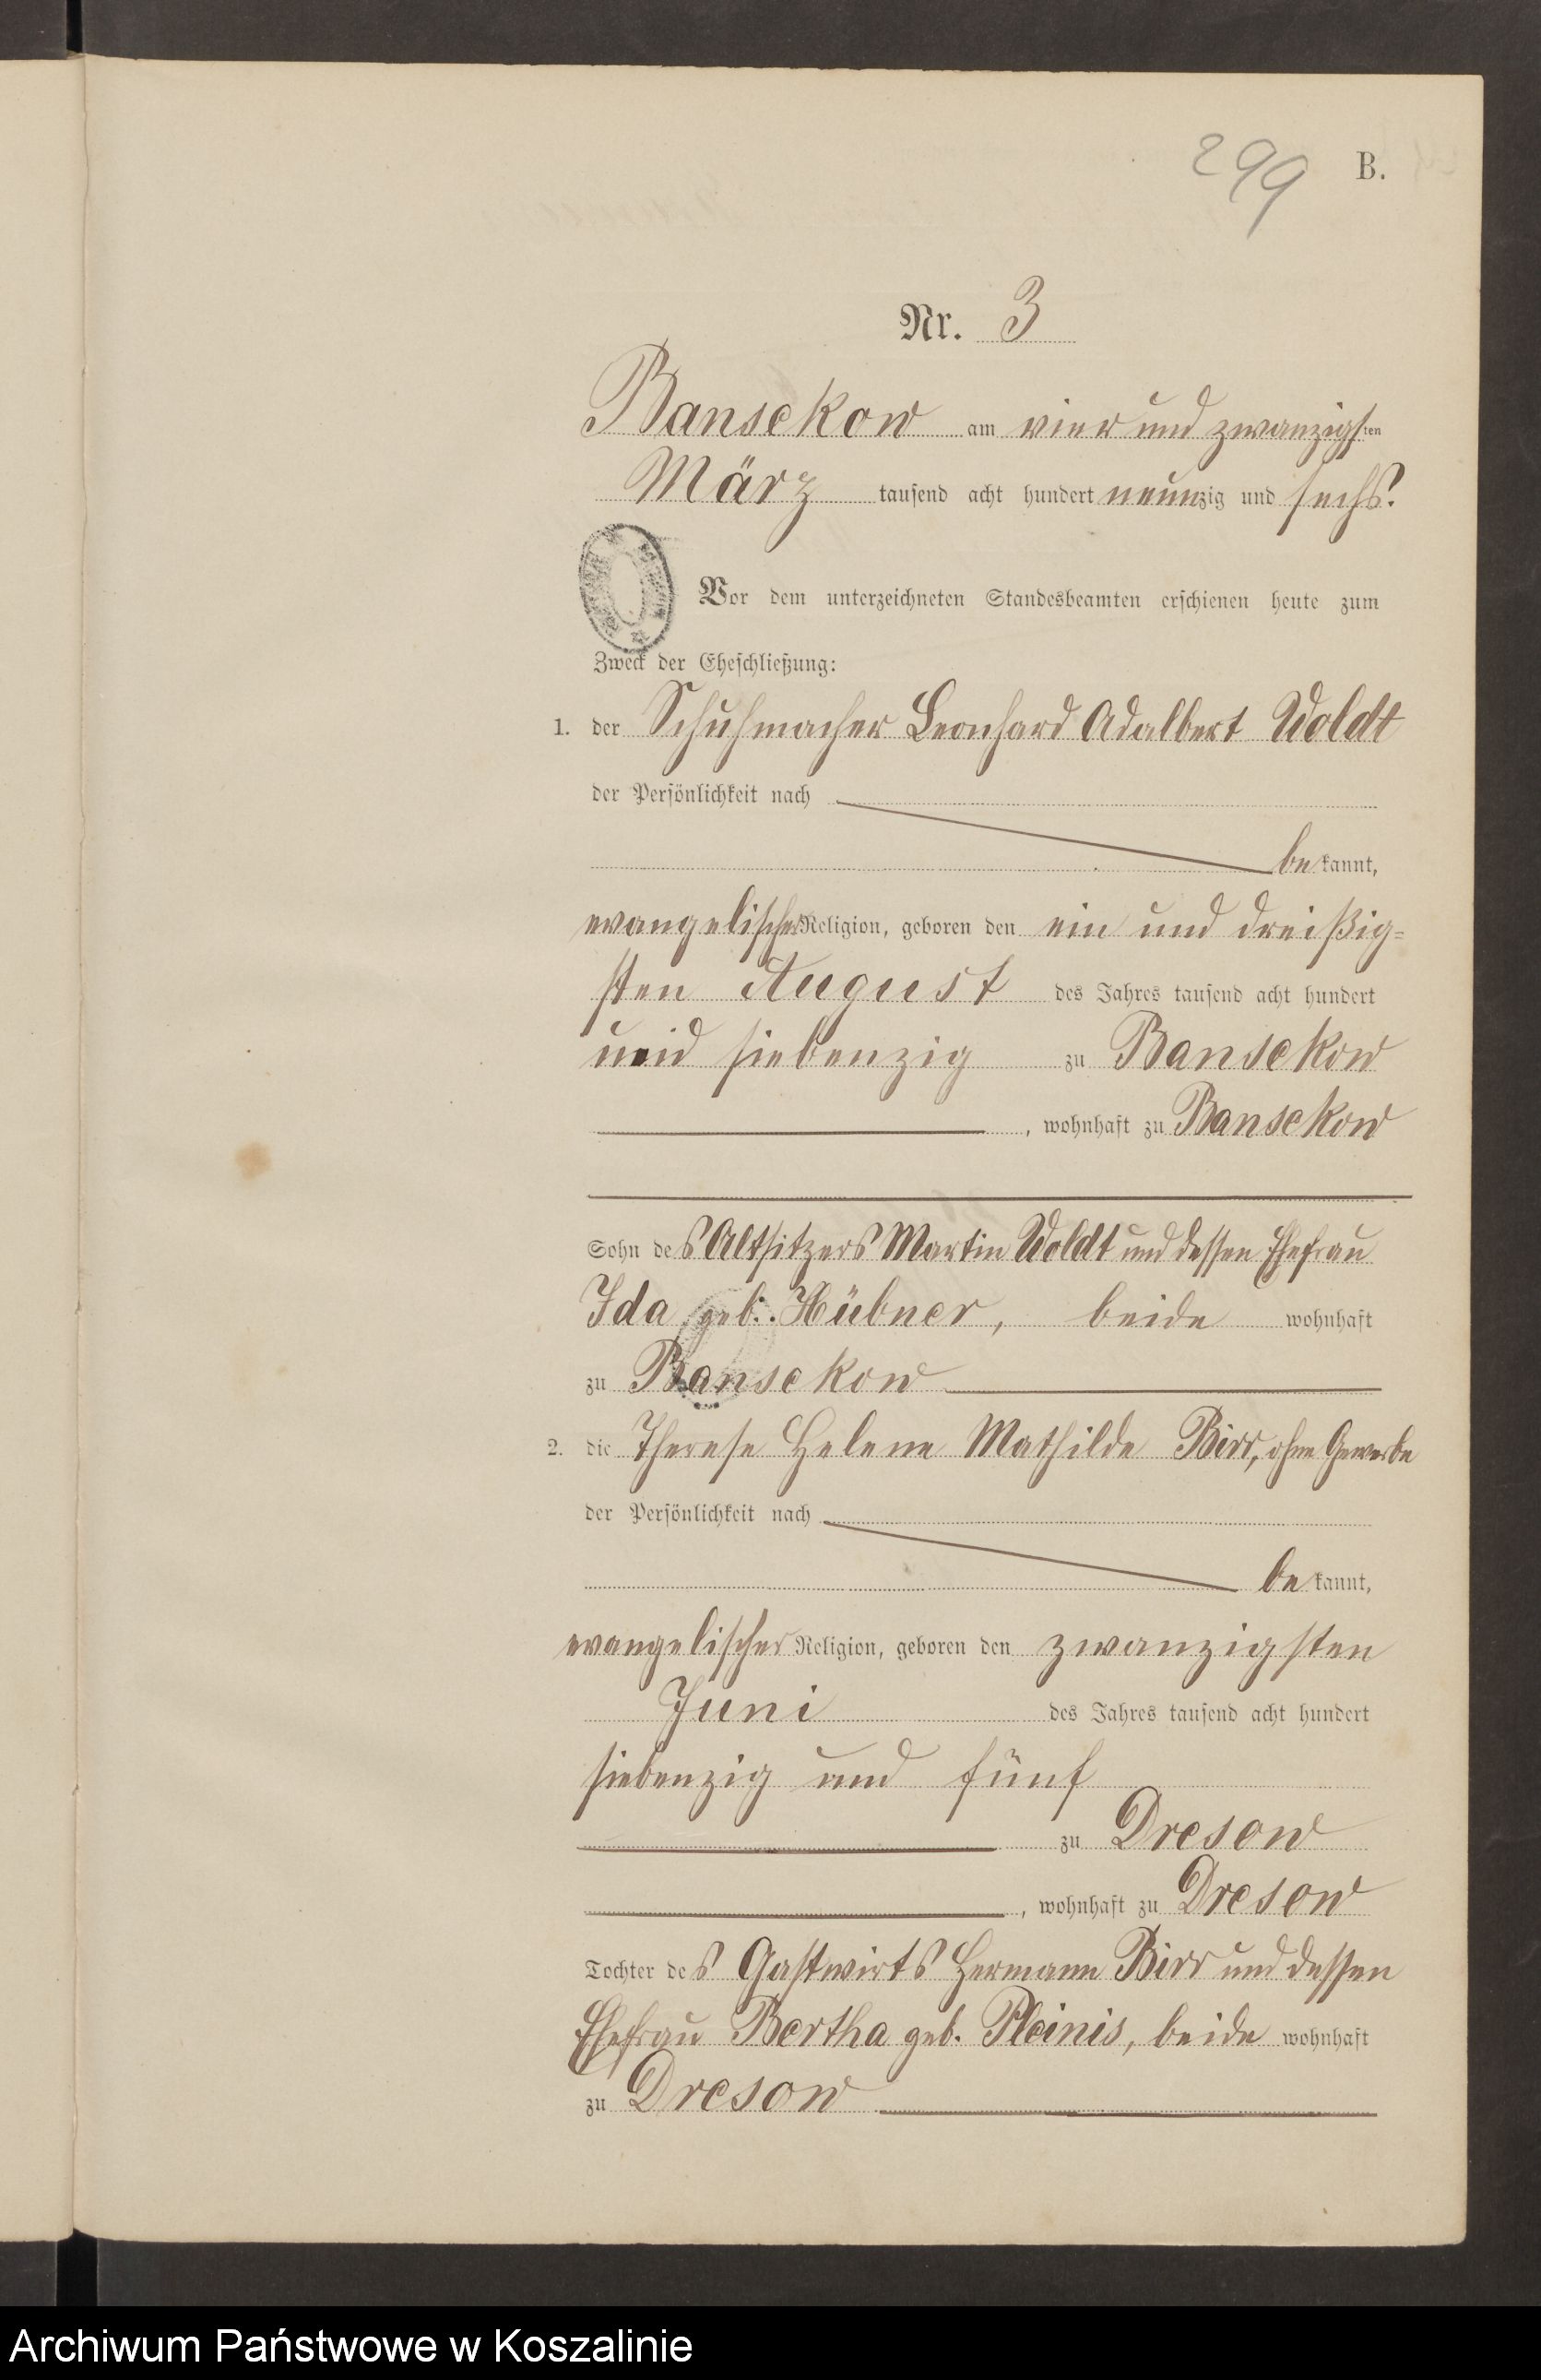 299 B.
Nr. 3
Bansekow am vier und zwanzigsten
März tausend acht hundert neunzig und sechs.
Vor dem unterzeichneten Standesbeamten erschienen heute zum
Zweck der Eheschließung:
1. der Schuhmacher Leonhard Adalbert Woldt
der Persönlichkeit nach
bekannt,
evangelischer Religion, geboren den ein und dreißig=
sten August des Jahres tausend acht hundert
und siebenzig zu Bansekow
, wohnhaft zu Bansekow
Sohn des Altsitzers Martin Woldt und dessen Ehefrau
Ida geb. Hübner, beide wohnhaft
zu Bansekow
2. die Therese Helene Mathilde Birr, ohne Gewerbe
der Persönlichkeit nach
bekannt,
evangelischer Religion, geboren den zwanzigsten
Juni des Jahres tausend acht hundert
siebenzig und fünf
zu Dresow
, wohnhaft zu Dresow
Tochter des Gastwirts Hermann Birr und dessen
Ehefrau Bertha geb. Pleinis, beide wohnhaft
zu Dresow
Archiwum Państwowe w Koszalinie